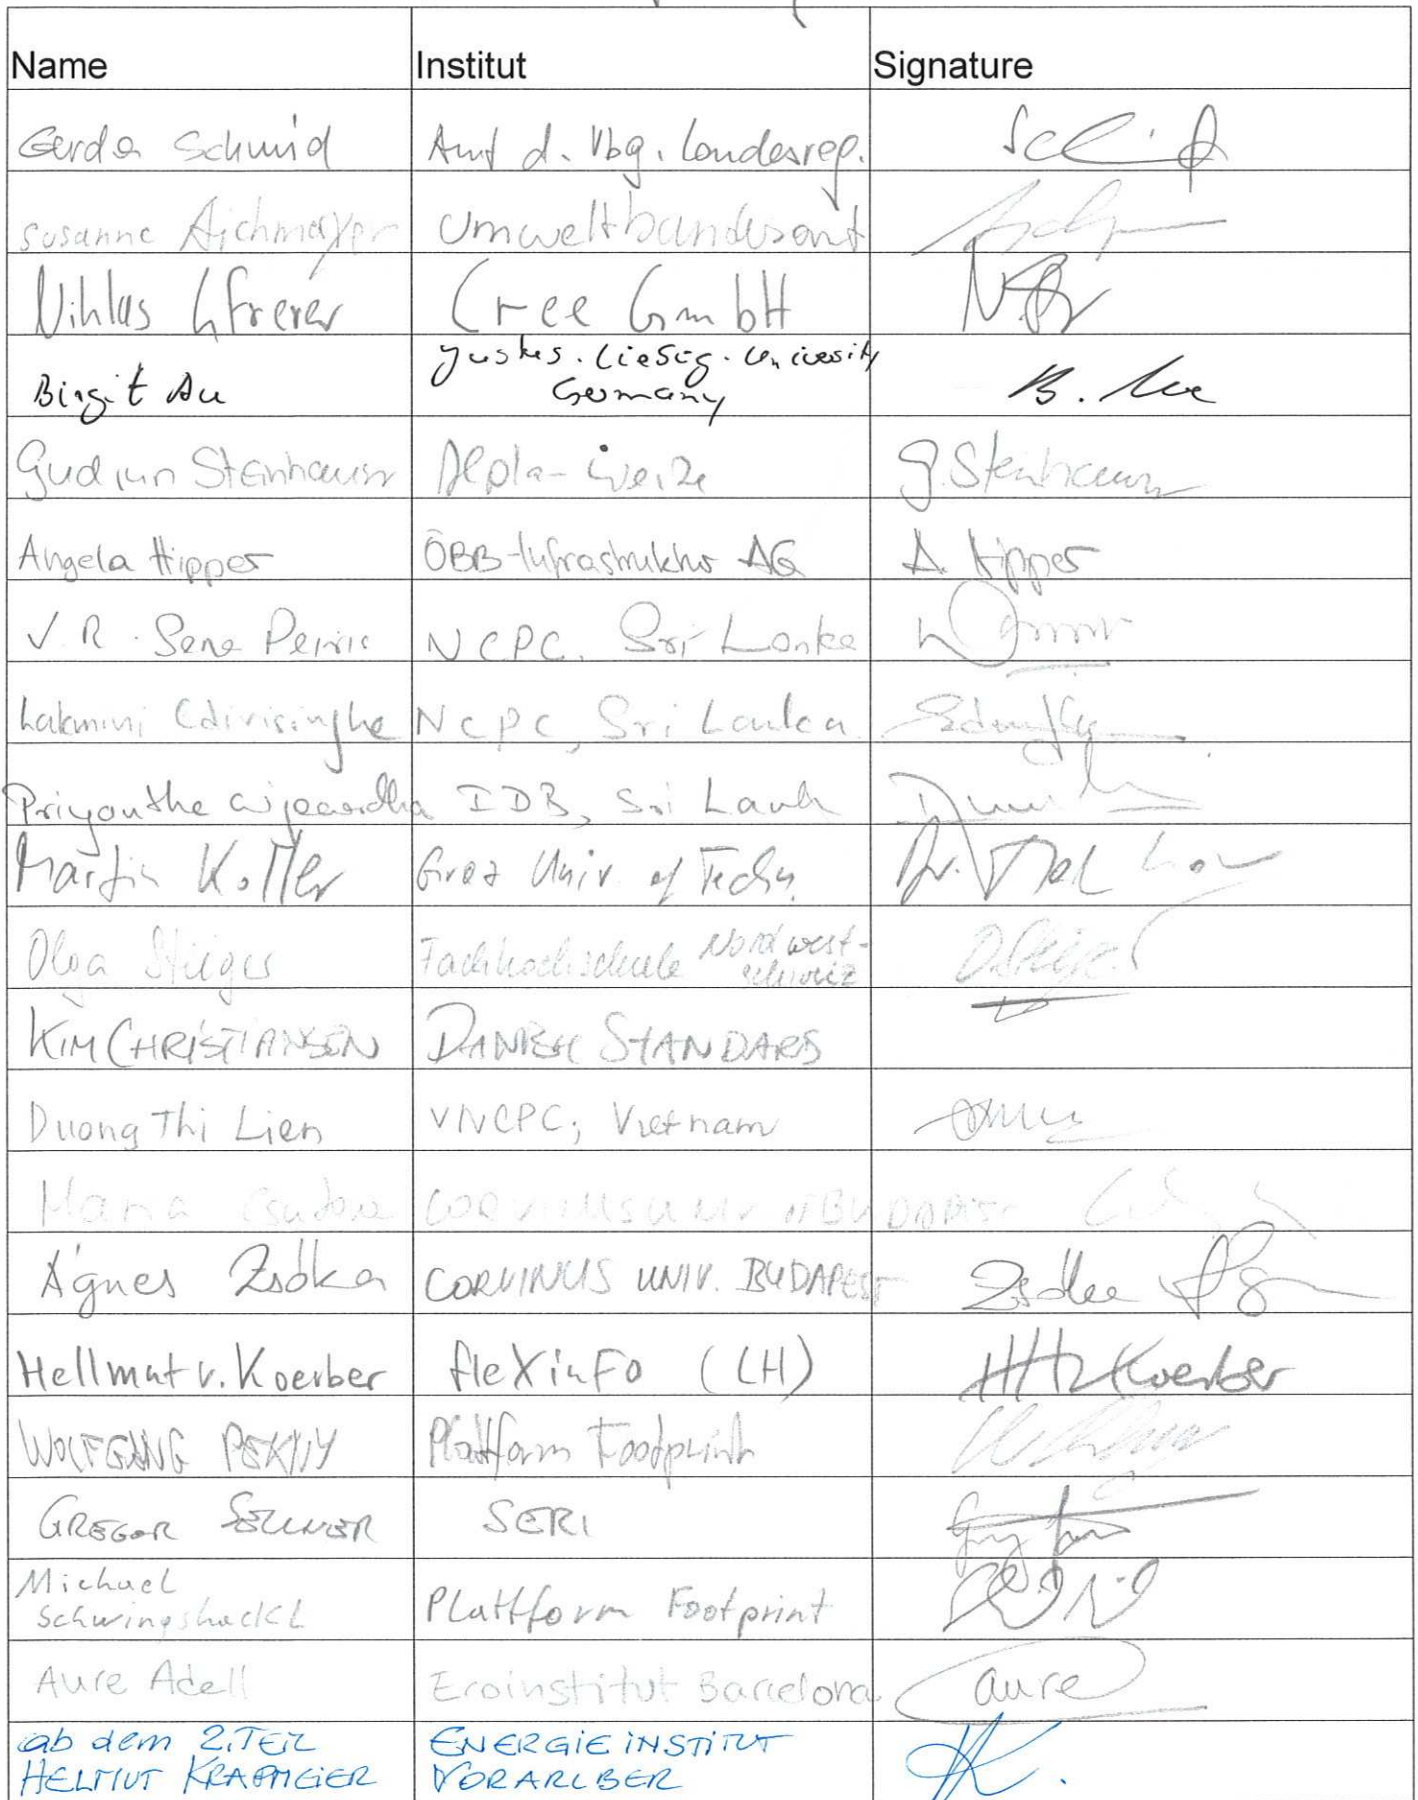 Name Institut Signature
Gerda Schmid Amt d. Vbg. Landesreg.
Susanne Aichmayer Umweltbundesamt
Niklas Gfrerer Cree GmbH
Justus-Liebig-University
Birgit Au Germany B. Au
Gudrun Steinhauser Alpla-Werke G. Steinhauser
Angela Hipper ÖBB-Infrastruktur AG A. Hipper
V. R. Sena Peiris NCPC, Sri Lanka
Lakmini Edirisinghe NCPC, Sri Lanka
Priyantha IDB, Sri Lanka
Martin Koller Graz Univ. of Techn.
Olga Steiger Fachhochschule Nordwest-
schweiz
KIM CHRISTIANSEN DANISH STANDARDS
Duong Thi Lien VNCPC, Vietnam
Maria Csutora CORVINUS UNIV OF BUDAPEST
Ágnes Zsóka CORVINUS UNIV. BUDAPEST Zsóka
Hellmut v. Koerber fleXinfo (CH) Koerber
WOLFGANG PEKNY Plattform Footprint
GREGOR SELLNER SERI
Michael
Schwingshackl Plattform Footprint
Aure Adell Ecoinstitut Barcelona aure
ab dem 2. TEIL ENERGIEINSTITUT
HELMUT KRAPMEIER VORARLBER K.